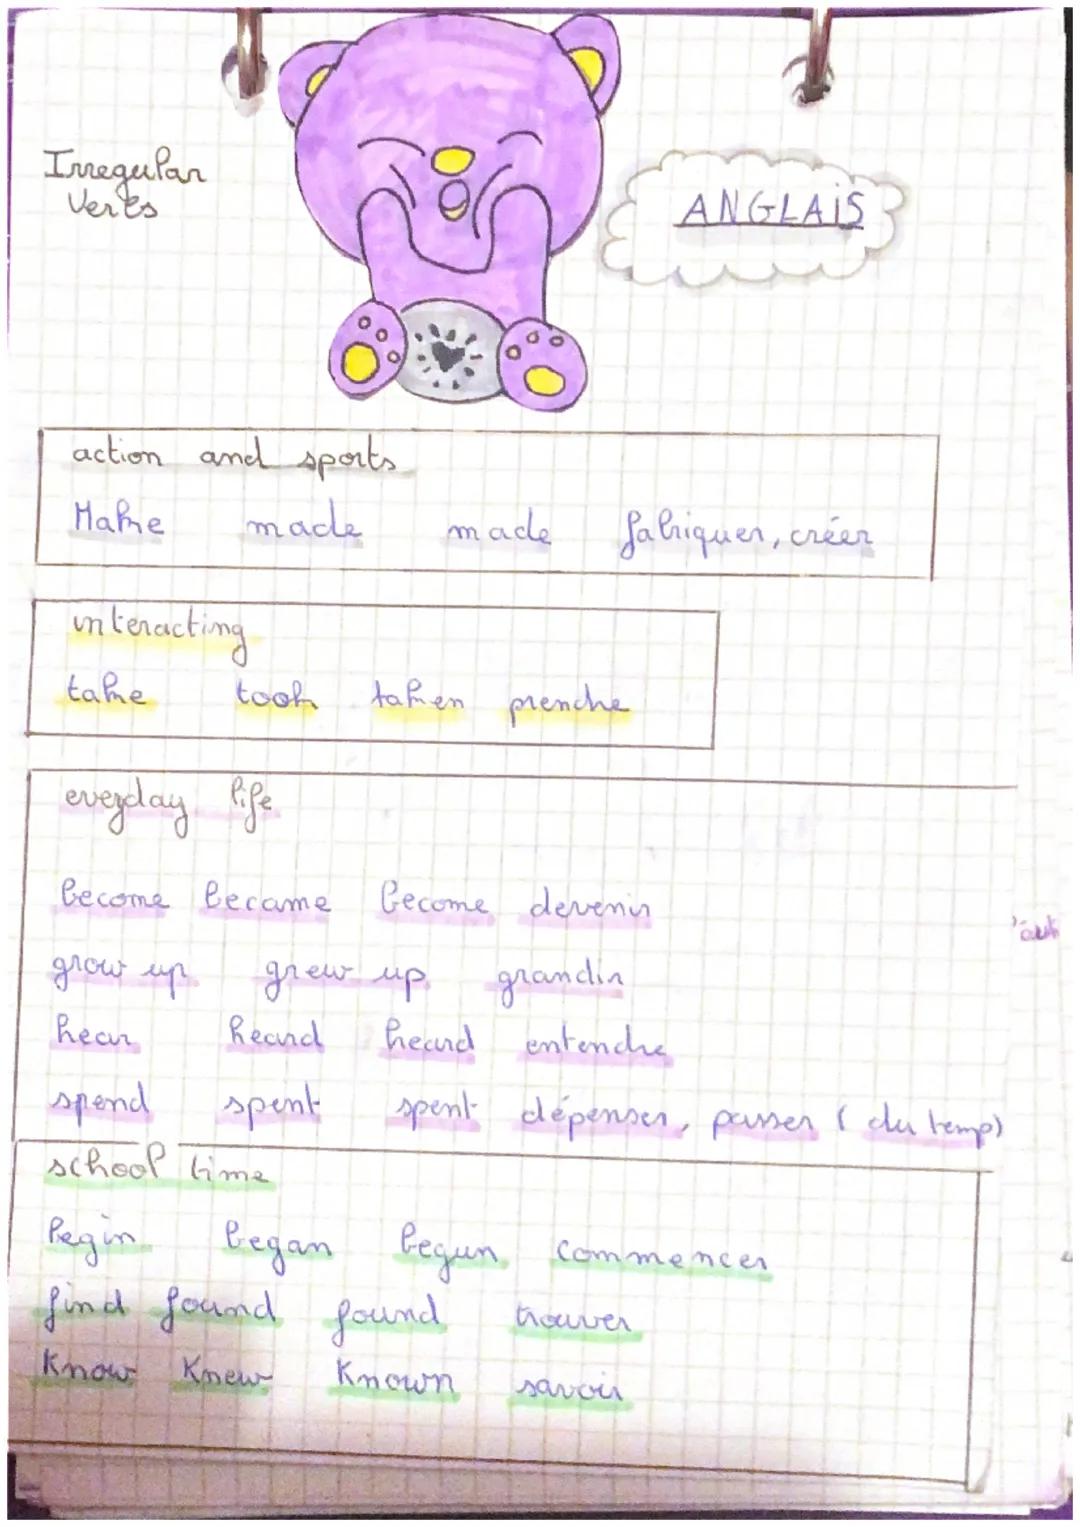 Irregular
Verbs
ANGLAIS
action and sports
Make made made fabriquer, créer
interacting
take took taken prendre
everyday life
become became become devenir
grow up grew up grandir
hear heard heard entendre
spend spent spent dépenser, passer (du temp)
school time
begin began begun commencer
find found found trouver
Know Knew Known savoir